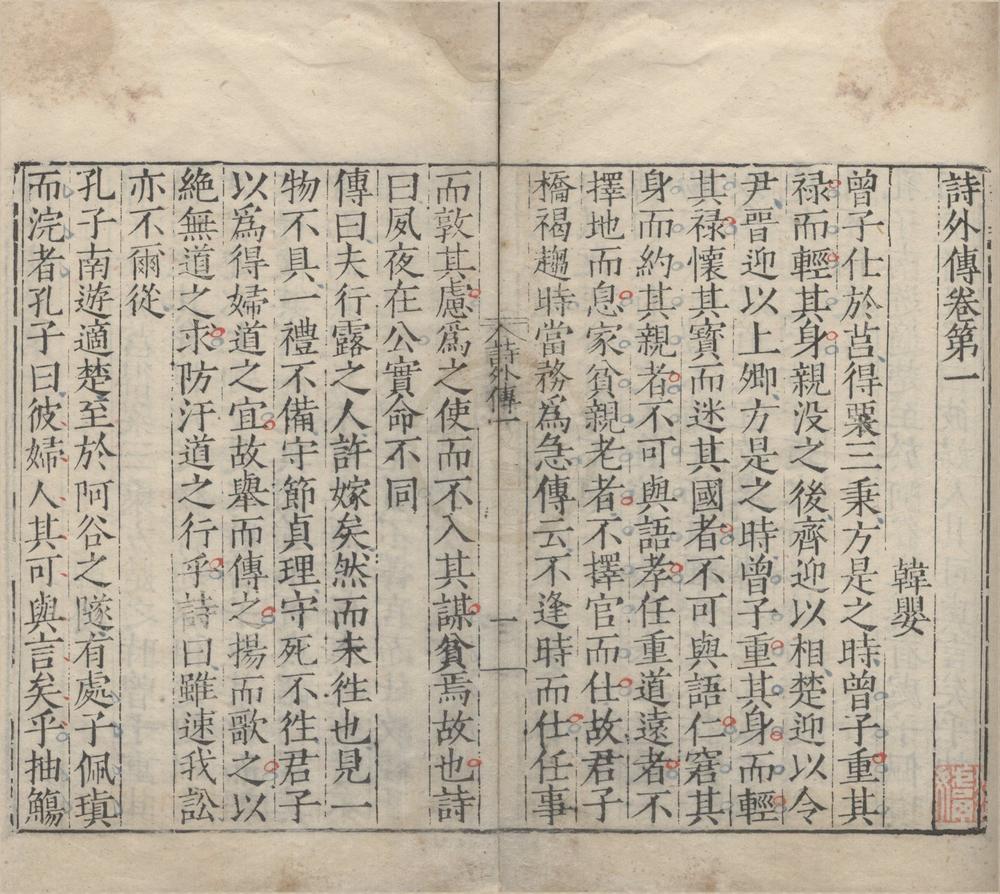 詩外傳卷第一
韓嬰
曾子仕於莒得粟三秉方是之時曾子重其
祿而輕其身親没之後齊迎以相楚迎以令
尹晋迎以上卿方是之時曾子重其身而輕
其祿懷其寶而迷其國者不可與語仁窘其
身而約其親者不可與語孝任重道遠者不
擇地而息家貧親老者不擇官而仕故君子
橋褐趨時當務爲急傳云不逢時而仕任事
而敦其慮爲之使而不入其謀貧焉故也詩
曰夙夜在公實命不同
傳曰夫行露之人許嫁矣然而未徃也見一
物不具一禮不備守節貞理守死不徃君子
以爲得婦道之宜故舉而傳之揚而歌之以
絶無道之求防汙道之行乎詩曰雖速我訟
亦不爾從
孔子南遊適楚至於阿谷之隧有處子佩瑱
而浣者孔子曰彼婦人其可與言矣乎抽觴
詩外傳一
一